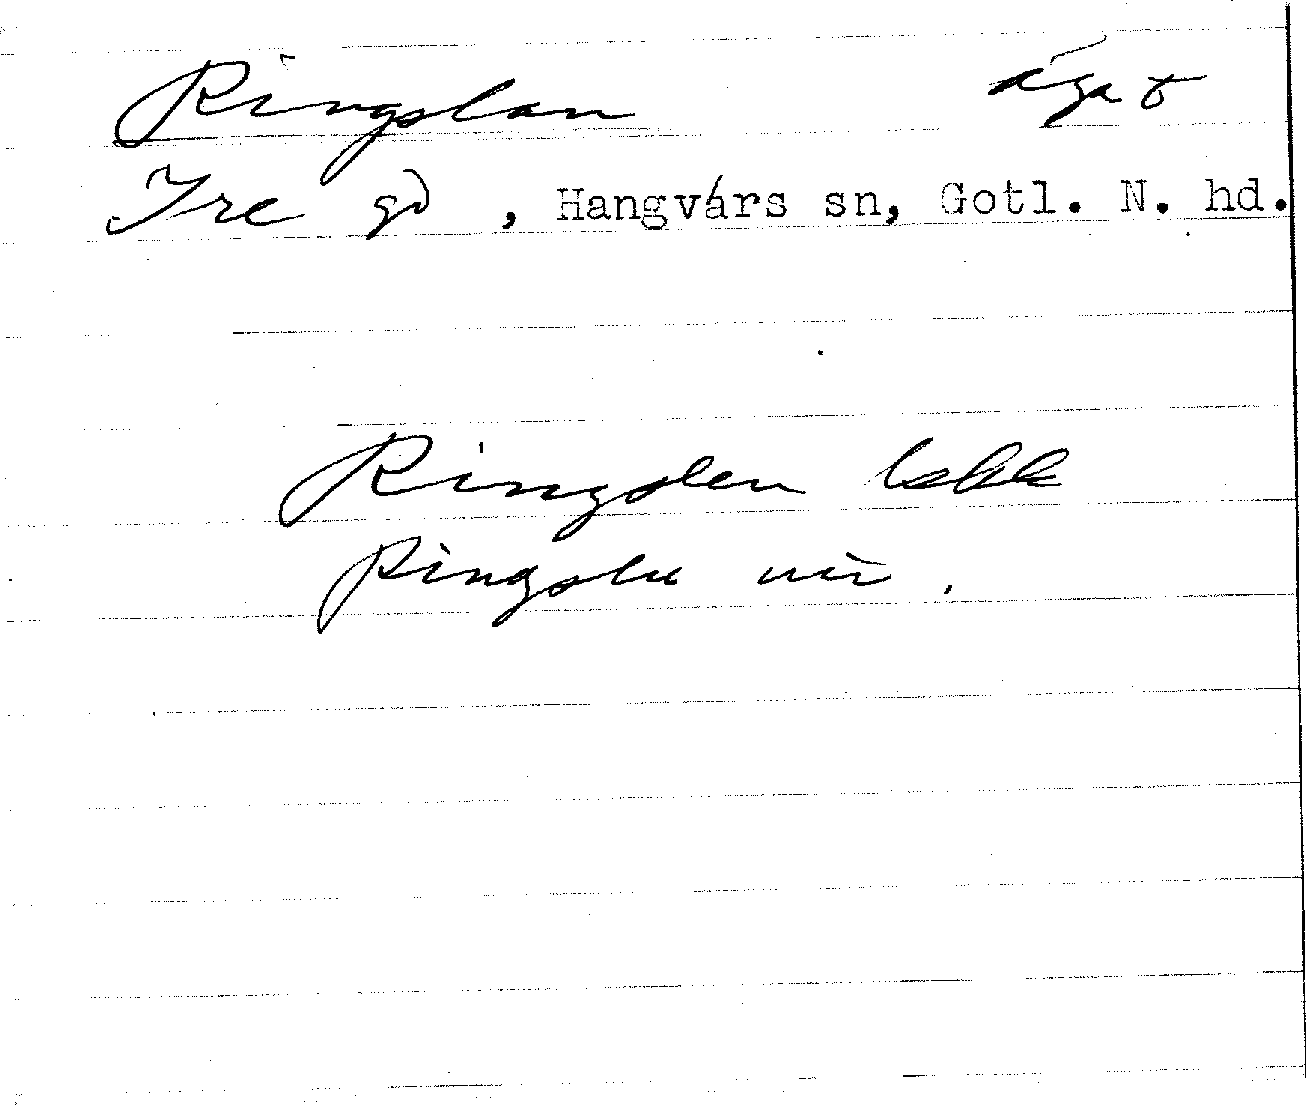 Ringslan äga t
Ire gd , Hangvårs sn, Gotl. N. hd.
Ringslen
Ringsln